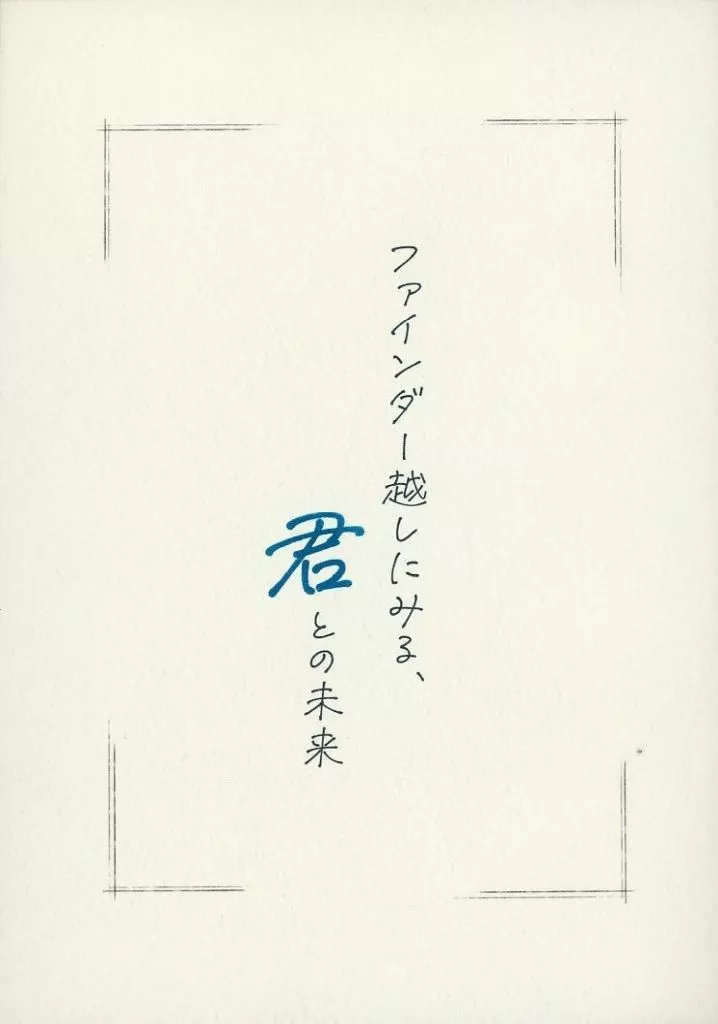 ファインダー越しにみる、
君との未来